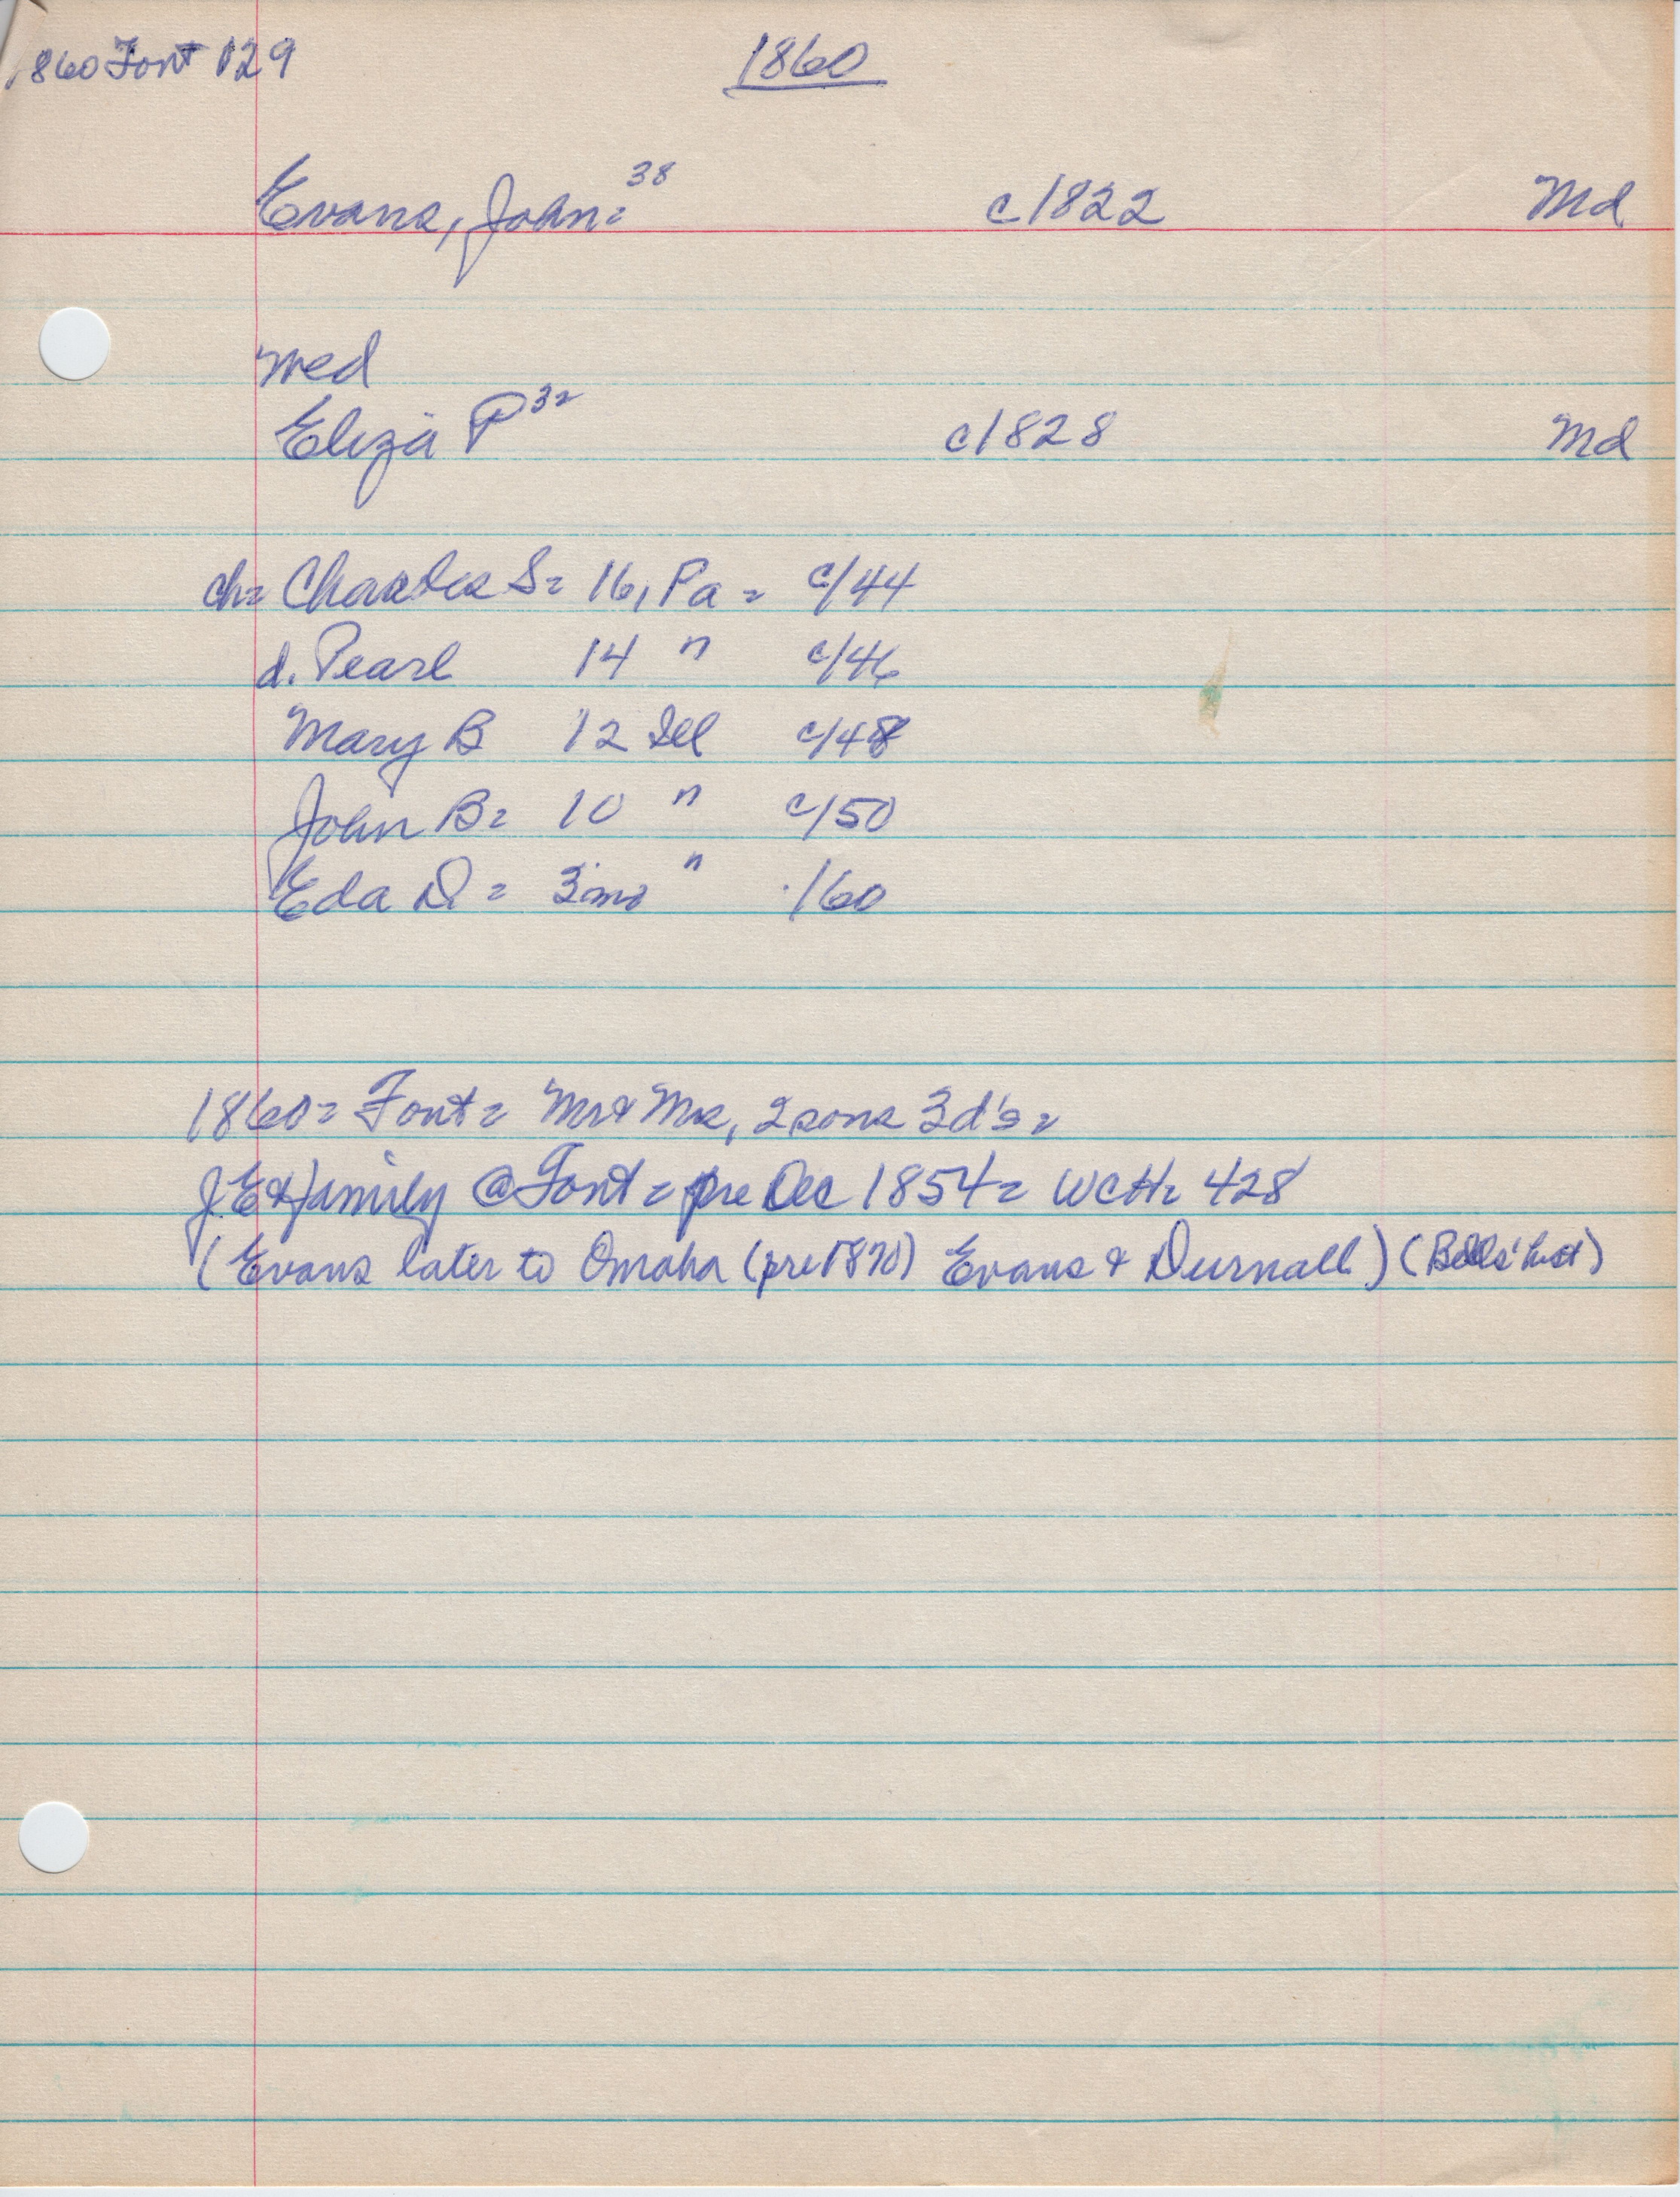 1860 Font 129
1860
Evans, John = 38 c1822 Md
med
Eliza P 32 c1828 Md
ch= Charles S= 16, Pa = c/44
d. Pearl 14 " c/46
Mary B 12 Ill c/48
John B= 10 " c/50
Eda D = 3mo " /60
1860= Font= Mr & Mrs, 2 sons 3 d's =
J.E & family @ Font = pre Dec 1854 = WCH= 428
(Evans later to Omaha (pre 1870) Evans & Durnall) (Bells' hist)